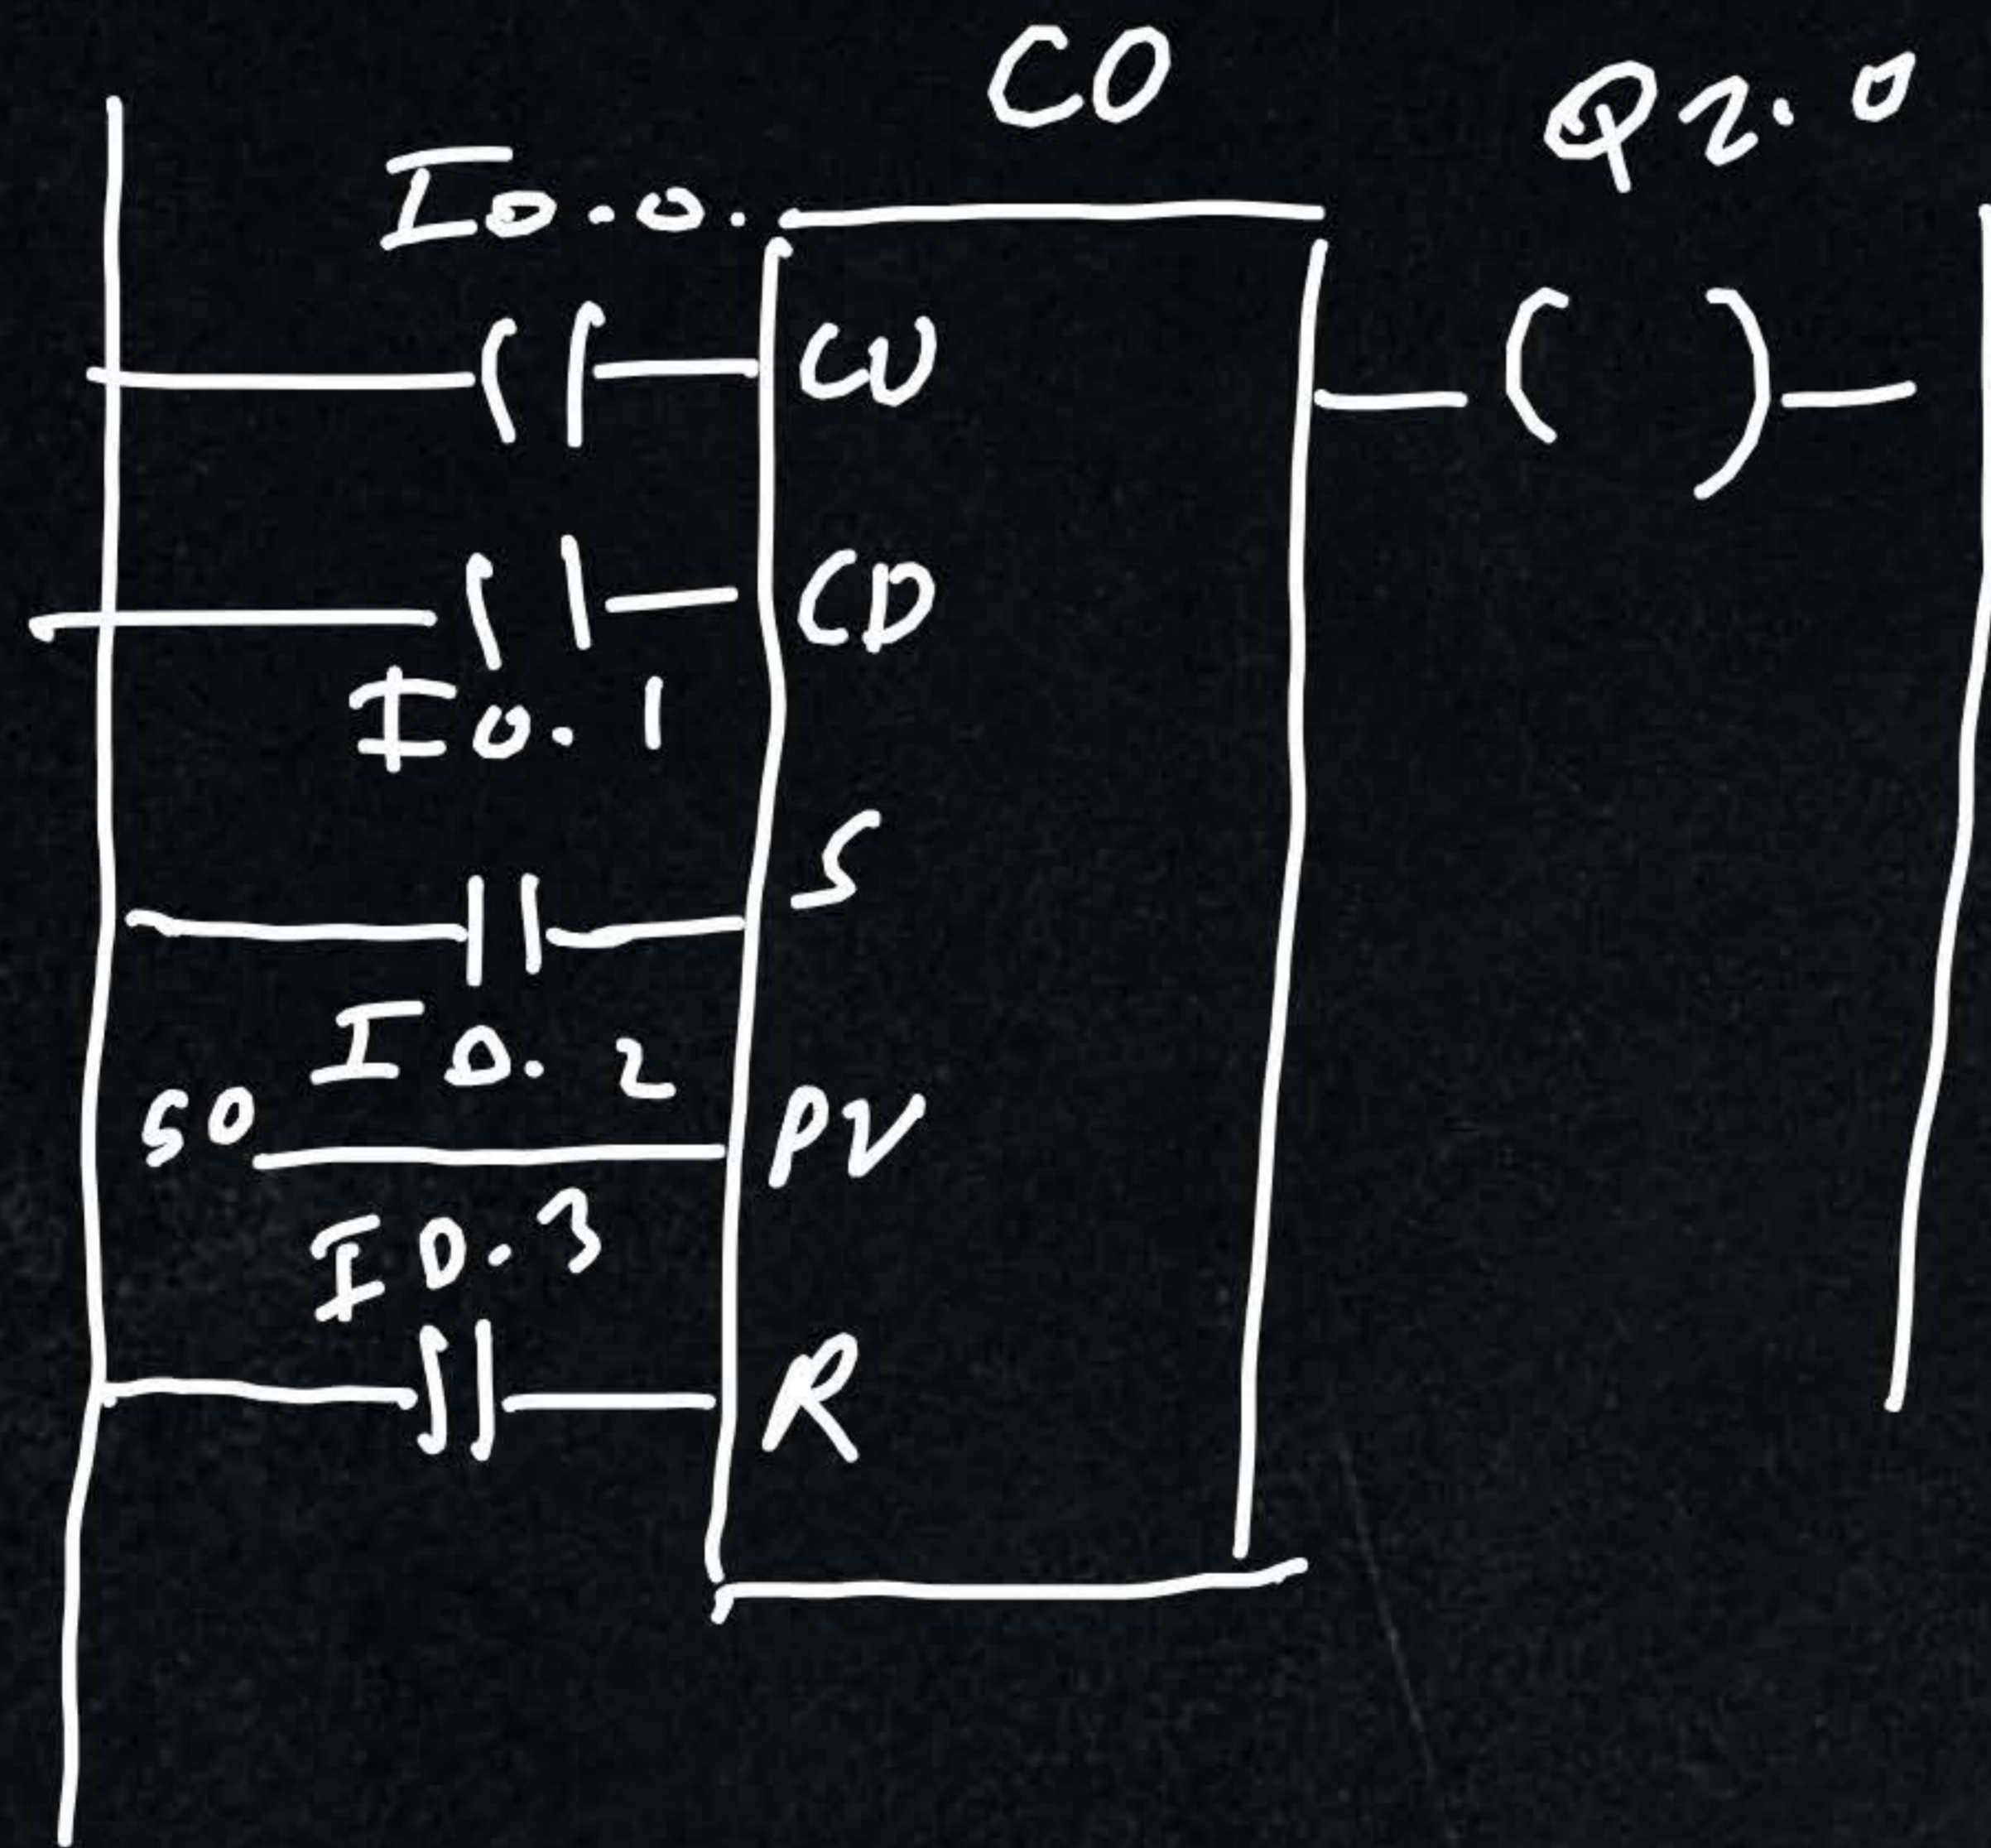 C0
Q2.0
I0.0.
CU
CD
I0.1
S
I0.2
50
PV
I0.3
R